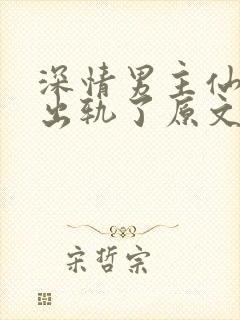 深情男主仙
出轨了原文
宋哲宗